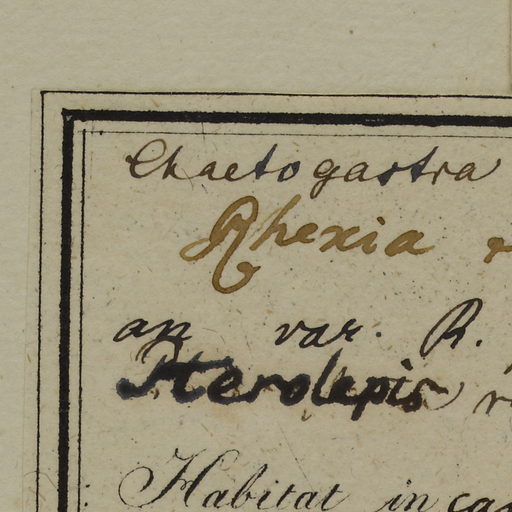 Chaetogastra
Rhexia
an var. R.
Pterolepis
Habitat in